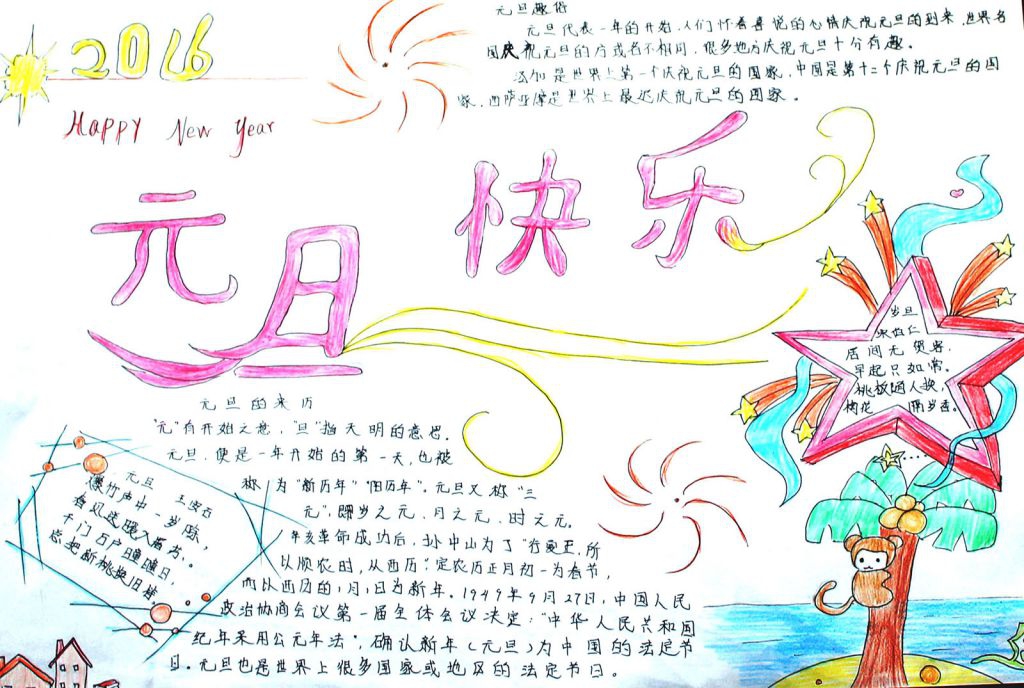 2016
Happy New Year
元旦快乐
元旦趣俗
元旦代表一年的开始,人们怀着喜悦的心情庆祝元旦的到来,世界各
国庆祝元旦的方式各不相同,很多地方庆祝元旦十分有趣。
是世界上第一个庆祝元旦的国家,中国是第十二个庆祝元旦的国
家,西萨亚摩是世界上最迟庆祝元旦的国家。
岁旦
宋伯仁
居间无贺客,
早起只如常。
桃板随人换,
梅花 隔岁香。
元旦的来历
"元"有开始之意,"旦"指天明的意思。
元旦,便是一年开始的第一天,也被
称为"新历年""阳历年"。元旦又称"三
元",即岁之元、月之元、时之元。
辛亥革命成功后,孙中山为了"行夏正,所
以顺农时,从西历",定农历正月初一为春节,
而以西历的1月1日为新年。1949年9月27日,中国人民
政治协商会议第一届全体会议决定:"中华人民共和国
纪年采用公元年法",确认新年(元旦)为中国的法定节
日。元旦也是世界上很多国家或地区的法定节日。
元旦 王安石
爆竹声中一岁除,
春风送暖入屠苏。
千门万户曈曈日,
总把新桃换旧符